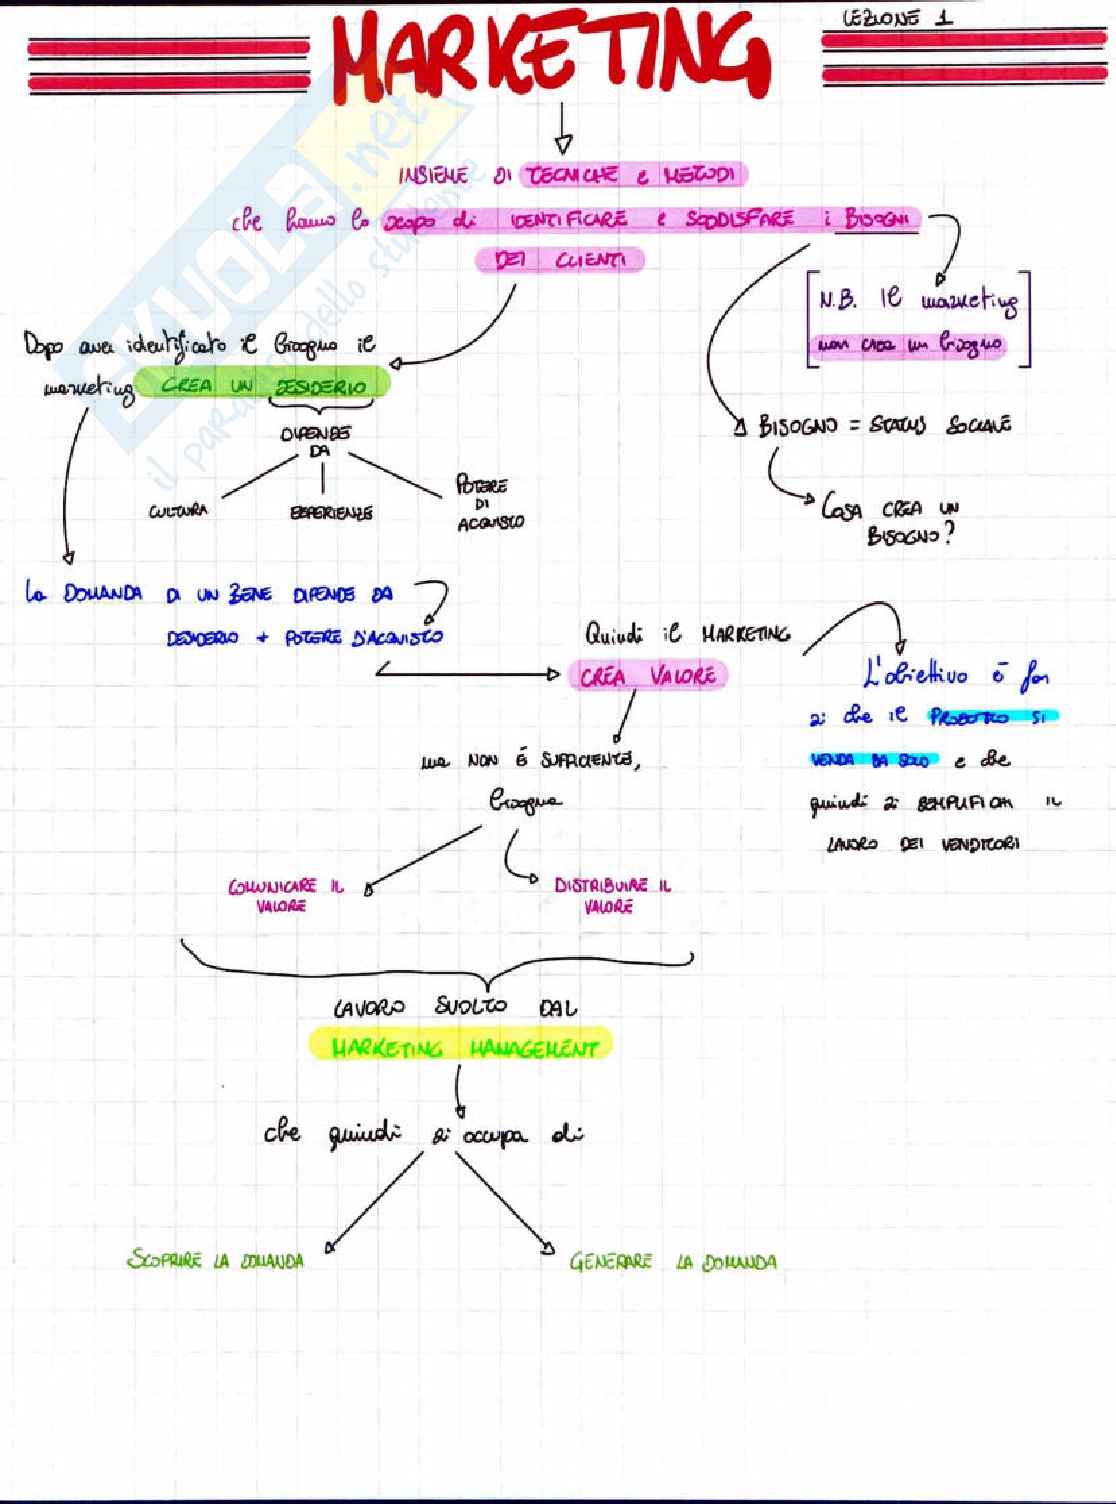 LEZIONE 1
MARKETING
INSIEME DI TECNICHE e METODI
che hanno lo scopo di IDENTIFICARE e SODDISFARE i BISOGNI
DEI CLIENTI
N.B. Il marketing
non crea un bisogno
Dopo aver identificato il bisogno il
marketing CREA UN DESIDERIO
DIPENDE
DA
CULTURA
ESPERIENZE
POTERE
DI
ACQUISTO
BISOGNO = STATUS SOCIALE
COSA CREA UN
BISOGNO?
La DOMANDA DI UN BENE DIPENDE DA
DESIDERIO + POTERE D'ACQUISTO
Quindi il MARKETING
CREA VALORE
L'obiettivo è far
sì che il PRODOTTO SI
VENDA DA SOLO e che
quindi si SEMPLIFICHI IL
LAVORO DEI VENDITORI
ma NON È SUFFICIENTE,
bisogna
COMUNICARE IL
VALORE
DISTRIBUIRE IL
VALORE
LAVORO SVOLTO DAL
MARKETING MANAGEMENT
che quindi si occupa di
SCOPRIRE LA DOMANDA
GENERARE LA DOMANDA
SKUOLA.net
il paradiso dello studente